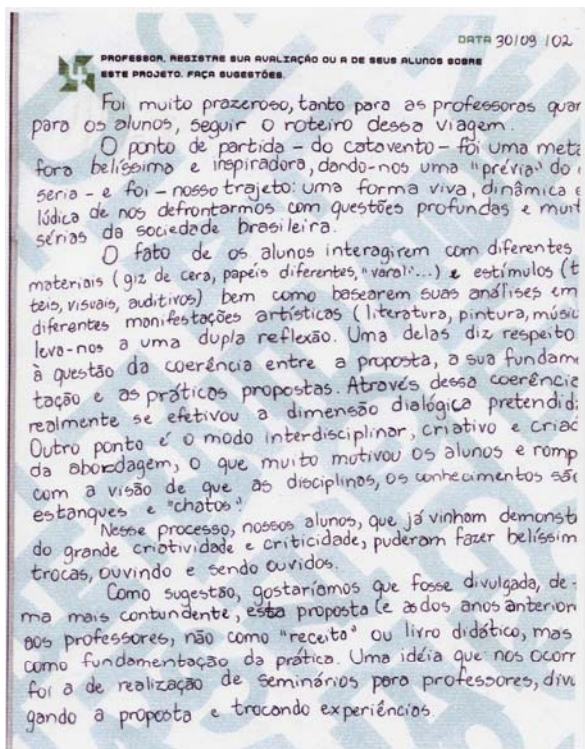 DATA 30/09/02
PROFESSOR, REGISTRE SUA AVALIAÇÃO OU A DE SEUS ALUNOS SOBRE
ESTE PROJETO. FAÇA SUGESTÕES.
Foi muito prazeroso, tanto para as professoras quan
para os alunos, seguir o roteiro dessa viagem.
O ponto de partida - do catavento - foi uma metá
fora belíssima e inspiradora, dando-nos uma "prévia" do
seria - e foi - nosso trajeto: uma forma viva, dinâmica e
lúdica de nos defrontarmos com questões profundas e muit
sérias da sociedade brasileira.
O fato de os alunos interagirem com diferentes
materiais (giz de cera, papéis diferentes, "varal"...) e estímulos (t
teis, visuais, auditivos) bem como basearem suas análises em
diferentes manifestações artísticas (literatura, pintura, músic
leva-nos a uma dupla reflexão. Uma delas diz respeito
à questão da coerência entre a proposta, a sua fundame
tação e as práticas propostas. Através dessa coerência
realmente se efetivou a dimensão dialógica pretendid
Outro ponto é o modo interdisciplinar, criativo e criad
da abordagem, o que muito motivou os alunos e romp
com a visão de que as disciplinas, os conhecimentos são
estanques e "chatos".
Nesse processo, nossos alunos, que já vinham demonst
do grande criatividade e criticidade, puderam fazer belíssim
trocas, ouvindo e sendo ouvidos.
Como sugestão, gostaríamos que fosse divulgada, de
ma mais contundente, esta proposta (e as dos anos anterior
aos professores, não como "receita" ou livro didático, mas
como fundamentação da prática. Uma idéia que nos ocorr
foi a de realização de seminários para professores, divu
gando a proposta e trocando experiências.